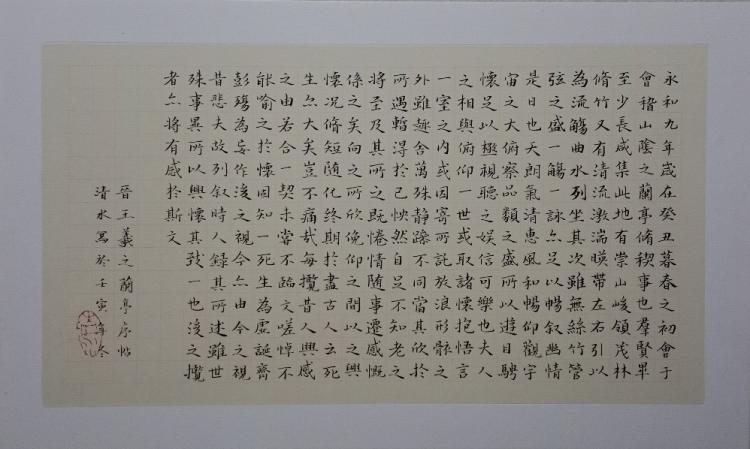 永和九年歲在癸丑暮春之初會于
會稽山陰之蘭亭脩稧事也羣賢畢
至少長咸集此地有崇山峻領茂林
脩竹又有清流激湍暎帶左右引以
為流觴曲水列坐其次雖無絲竹管
弦之盛一觴一詠亦足以暢叙幽情
是日也天朗氣清惠風和暢仰觀宇
宙之大俯察品類之盛所以遊目騁
懷足以極視聽之娛信可樂也夫人
之相與俯仰一世或取諸懷抱悟言
一室之内或因寄所託放浪形骸之
外雖趣舍萬殊静躁不同當其欣於
所遇暫得於己怏然自足不知老之
將至及其所之既惓情隨事遷感慨
係之矣向之所欣俛仰之間以之興
懷況脩短隨化終期於盡古人云死
生亦大矣豈不痛哉每攬昔人興感
之由若合一契未嘗不臨文嗟悼不
能喻之於懷固知一死生為虛誕齊
彭殤為妄作後之視今亦由今之視
昔悲夫故列叙時人錄其所述雖世
殊事異所以興懷其致一也後之攬
者亦將有感於斯文
晉王羲之蘭亭序帖
清水寫於壬寅年冬